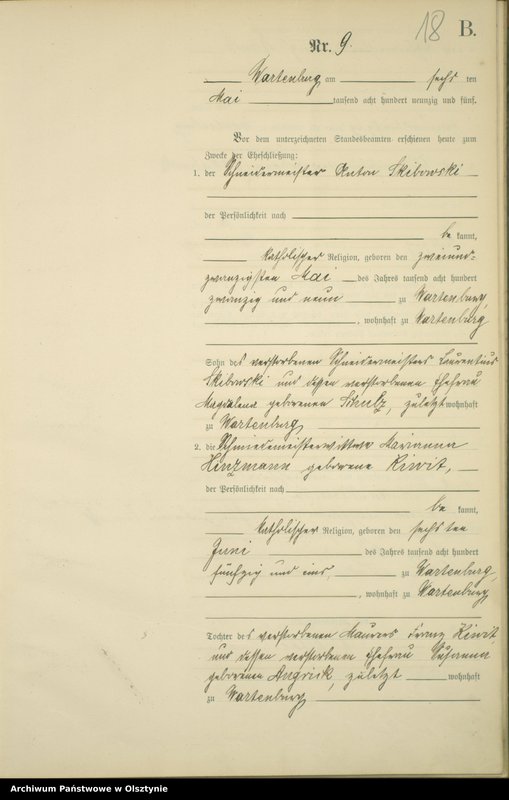 18 B.
Nr. 9.
Wartenburg am sechs ten
Mai tausend acht hundert neunzig und fünf.
Vor dem unterzeichneten Standesbeamten erschienen heute zum
Zwecke der Eheschließung:
1. der Schneidermeister Anton Skibowski
der Persönlichkeit nach
be kannt,
katholischer Religion, geboren den zweiund-
zwanzigsten Mai des Jahres tausend acht hundert
zwanzig und neun zu Wartenburg,
, wohnhaft zu Wartenburg
Sohn des verstorbenen Schneidermeisters Laurentius
Skibowski und dessen verstorbenen Ehefrau
Magdalena geborenen Schulz, zuletzt wohnhaft
zu Wartenburg
2. die Schmiedemeisterwittwe Marianna
Hinzmann geborene Kiwit,
der Persönlichkeit nach
be kannt,
katholischer Religion, geboren den sechs ten
Juni des Jahres tausend acht hundert
fünfzig und eins zu Wartenburg,
, wohnhaft zu Wartenburg
Tochter des verstorbenen Maurers Franz Kiwit
und dessen verstorbenen Ehefrau Susanna
geborenen Angrick, zuletzt wohnhaft
zu Wartenburg
Archiwum Państwowe w Olsztynie